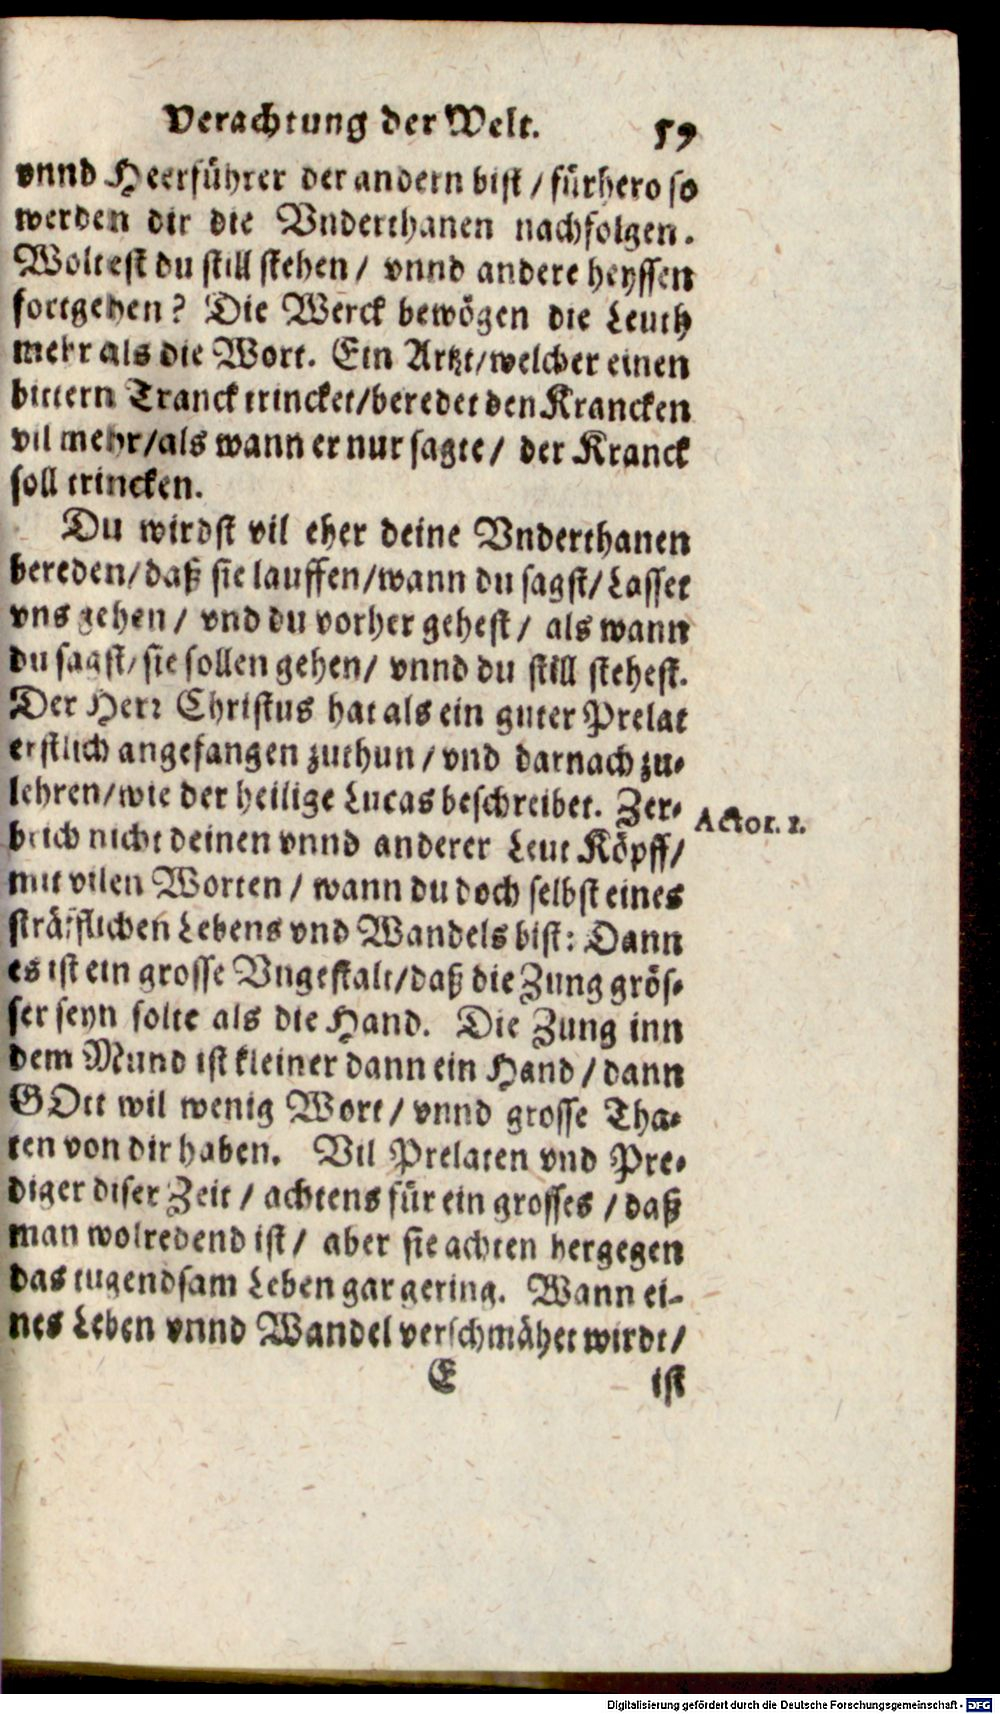 Verachtung der Welt. 59
vnnd Heerführer der andern bist / fürhero so
werden dir die Vnderthanen nachfolgen.
Woltest du still stehen / vnnd andere heyssen
fortgehen? Die Werck bewögen die Leuth
mehr als die Wort. Ein Artzt/welcher einen
bittern Tranck trincket/beredet den Krancken
vil mehr/als wann er nur sagte / der Kranck
soll trincken.
Du wirdst vil eher deine Vnderthanen
bereden/daß sie lauffen/wann du sagst/Lasset
vns gehen / vnd du vorher gehest / als wann
du sagst/sie sollen gehen/ vnnd du still stehest.
Der Herr Christus hat als ein guter Prelat
erstlich angefangen zuthun / vnd darnach zu-
lehren/wie der heilige Lucas beschreibet. Zer-
Actor. 1.
brich nicht deinen vnnd anderer Leut Köpff/
mit vilen Worten / wann du doch selbst eines
sträfflichen Lebens vnd Wandels bist: Dann
es ist ein grosse Vngestalt/daß die Zung grös-
ser seyn solte als die Hand. Die Zung inn
dem Mund ist kleiner dann ein Hand / dann
GOtt wil wenig Wort / vnnd grosse Tha-
ten von dir haben. Vil Prelaten vnd Pre-
diger diser Zeit / achtens für ein grosses / daß
man wolredend ist / aber sie achten hergegen
das tugendsam Leben gar gering. Wann ei-
nes Leben vnnd Wandel verschmähet wirdt/
E ist
Digitalisierung gefördert durch die Deutsche Forschungsgemeinschaft - DFG